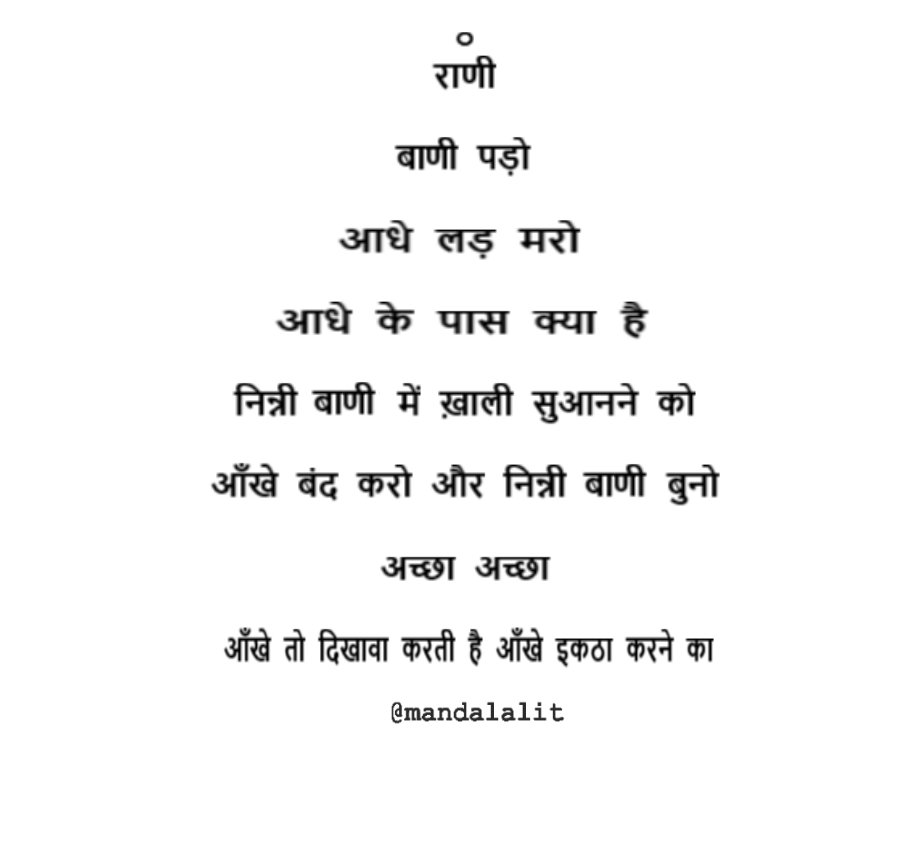 ०
राणी
बाणी पड़ो
आधे लड़ मरो
आधे के पास क्या है
निन्नी बाणी में ख़ाली सुआनने को
आँखे बंद करो और निन्नी बाणी बुनो
अच्छा अच्छा
आँखे तो दिखावा करती है आँखे इकठा करने का
@mandalalit